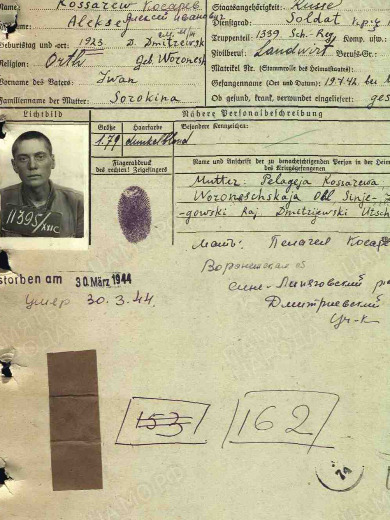 Name: Kossarew Косарев
Staatsangehörigkeit: Russe
Aleksej Алексей Иванович
Dienstgrad: Soldat
Truppenteil: 1339 Sch.-Reg.
Geburtstag und -ort: 1923 D. Dmitrzewsk
Zivilberuf: Landwirt Berufs-Gr.:
Religion: Orth Geb. Woronesh
Matrikel Nr. (Stammrolle des Heimatstaates):
Vorname des Vaters: Iwan
Gefangennahme (Ort und Datum): 19.7.42. bei
Familienname der Mutter: Sorokina
Ob gesund, krank, verwundet eingeliefert: ges
Lichtbild
Nähere Personalbeschreibung
Größe Haarfarbe Besondere Kennzeichen:
1.79 dunkelblond
Fingerabdruck
des rechten! Zeigefingers
Name und Anschrift der zu benachrichtigenden Person in der Heimat
des Kriegsgefangenen
Mutter: Pelageja Kossarewa
Woroneschskaja Obl Sinje-
-gowski Raj Dmitrijewski Utsch
11395/XIIC
мать: Пелагея Косарева
Воронежская об
storben am 30. März 1944
сине-Липяговский
умер 30.3.44.
Дмитриевский
Уч-к
153
162
74